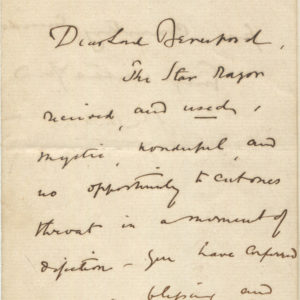 Dear Lord Beresford,
The Star Razor
received, and used,
mystic, wonderful, and
no opportunity to cut ones
throat in a moment of
dejection - you have conferred
blessing and